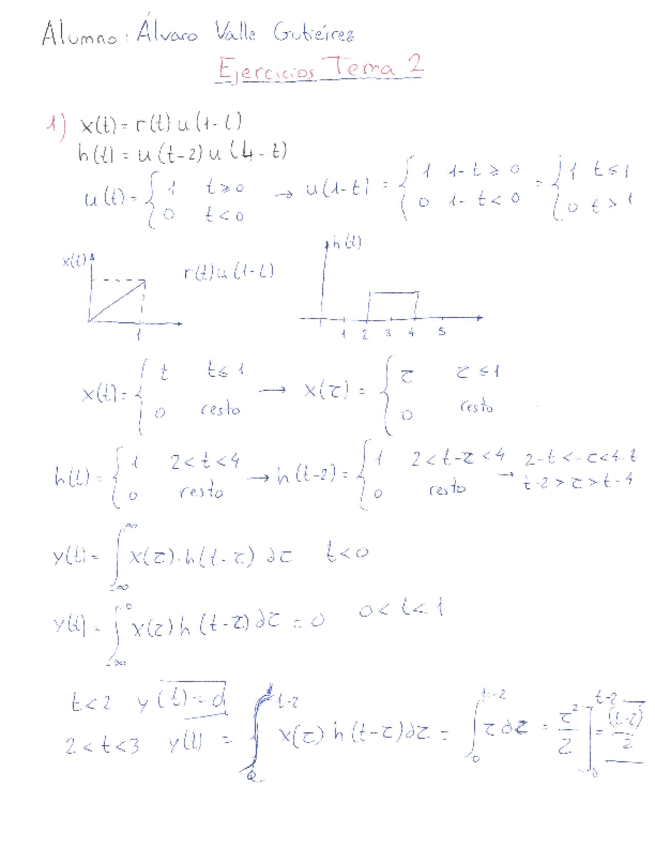 Alumno: Álvaro Valle Gutiérrez
Ejercicios Tema 2
1) x(t) = r(t) u(1-t)
h(t) = u(t-2) u(4-t)
u(t) = { 1 t≥0 → u(1-t) = { 1 1-t≥0 = { 1 t≤1
0 t<0 0 1-t<0 0 t>1
x(t) r(t)u(1-t) h(t)
1 1 2 3 4 5
x(t) = { t t≤1 → x(τ) = { τ τ≤1
0 resto 0 resto
h(t) = { 1 2<t<4 → h(t-2) = { 1 2<t-τ<4 → 2-t<-τ<4-t
0 resto 0 resto t-2>τ>t-4
y(t) = ∫_{-∞}^{∞} x(τ)·h(t-τ) dτ t<0
y(t) = ∫_{-∞} x(τ) h(t-τ) dτ = 0 0<t<1
t<2 y(t) = 0
2<t<3 y(t) = ∫_0^{t-2} x(τ) h(t-τ) dτ = ∫_0^{t-2} τ dτ = τ²/2 ]_0^{t-2} = (t-2)²/2